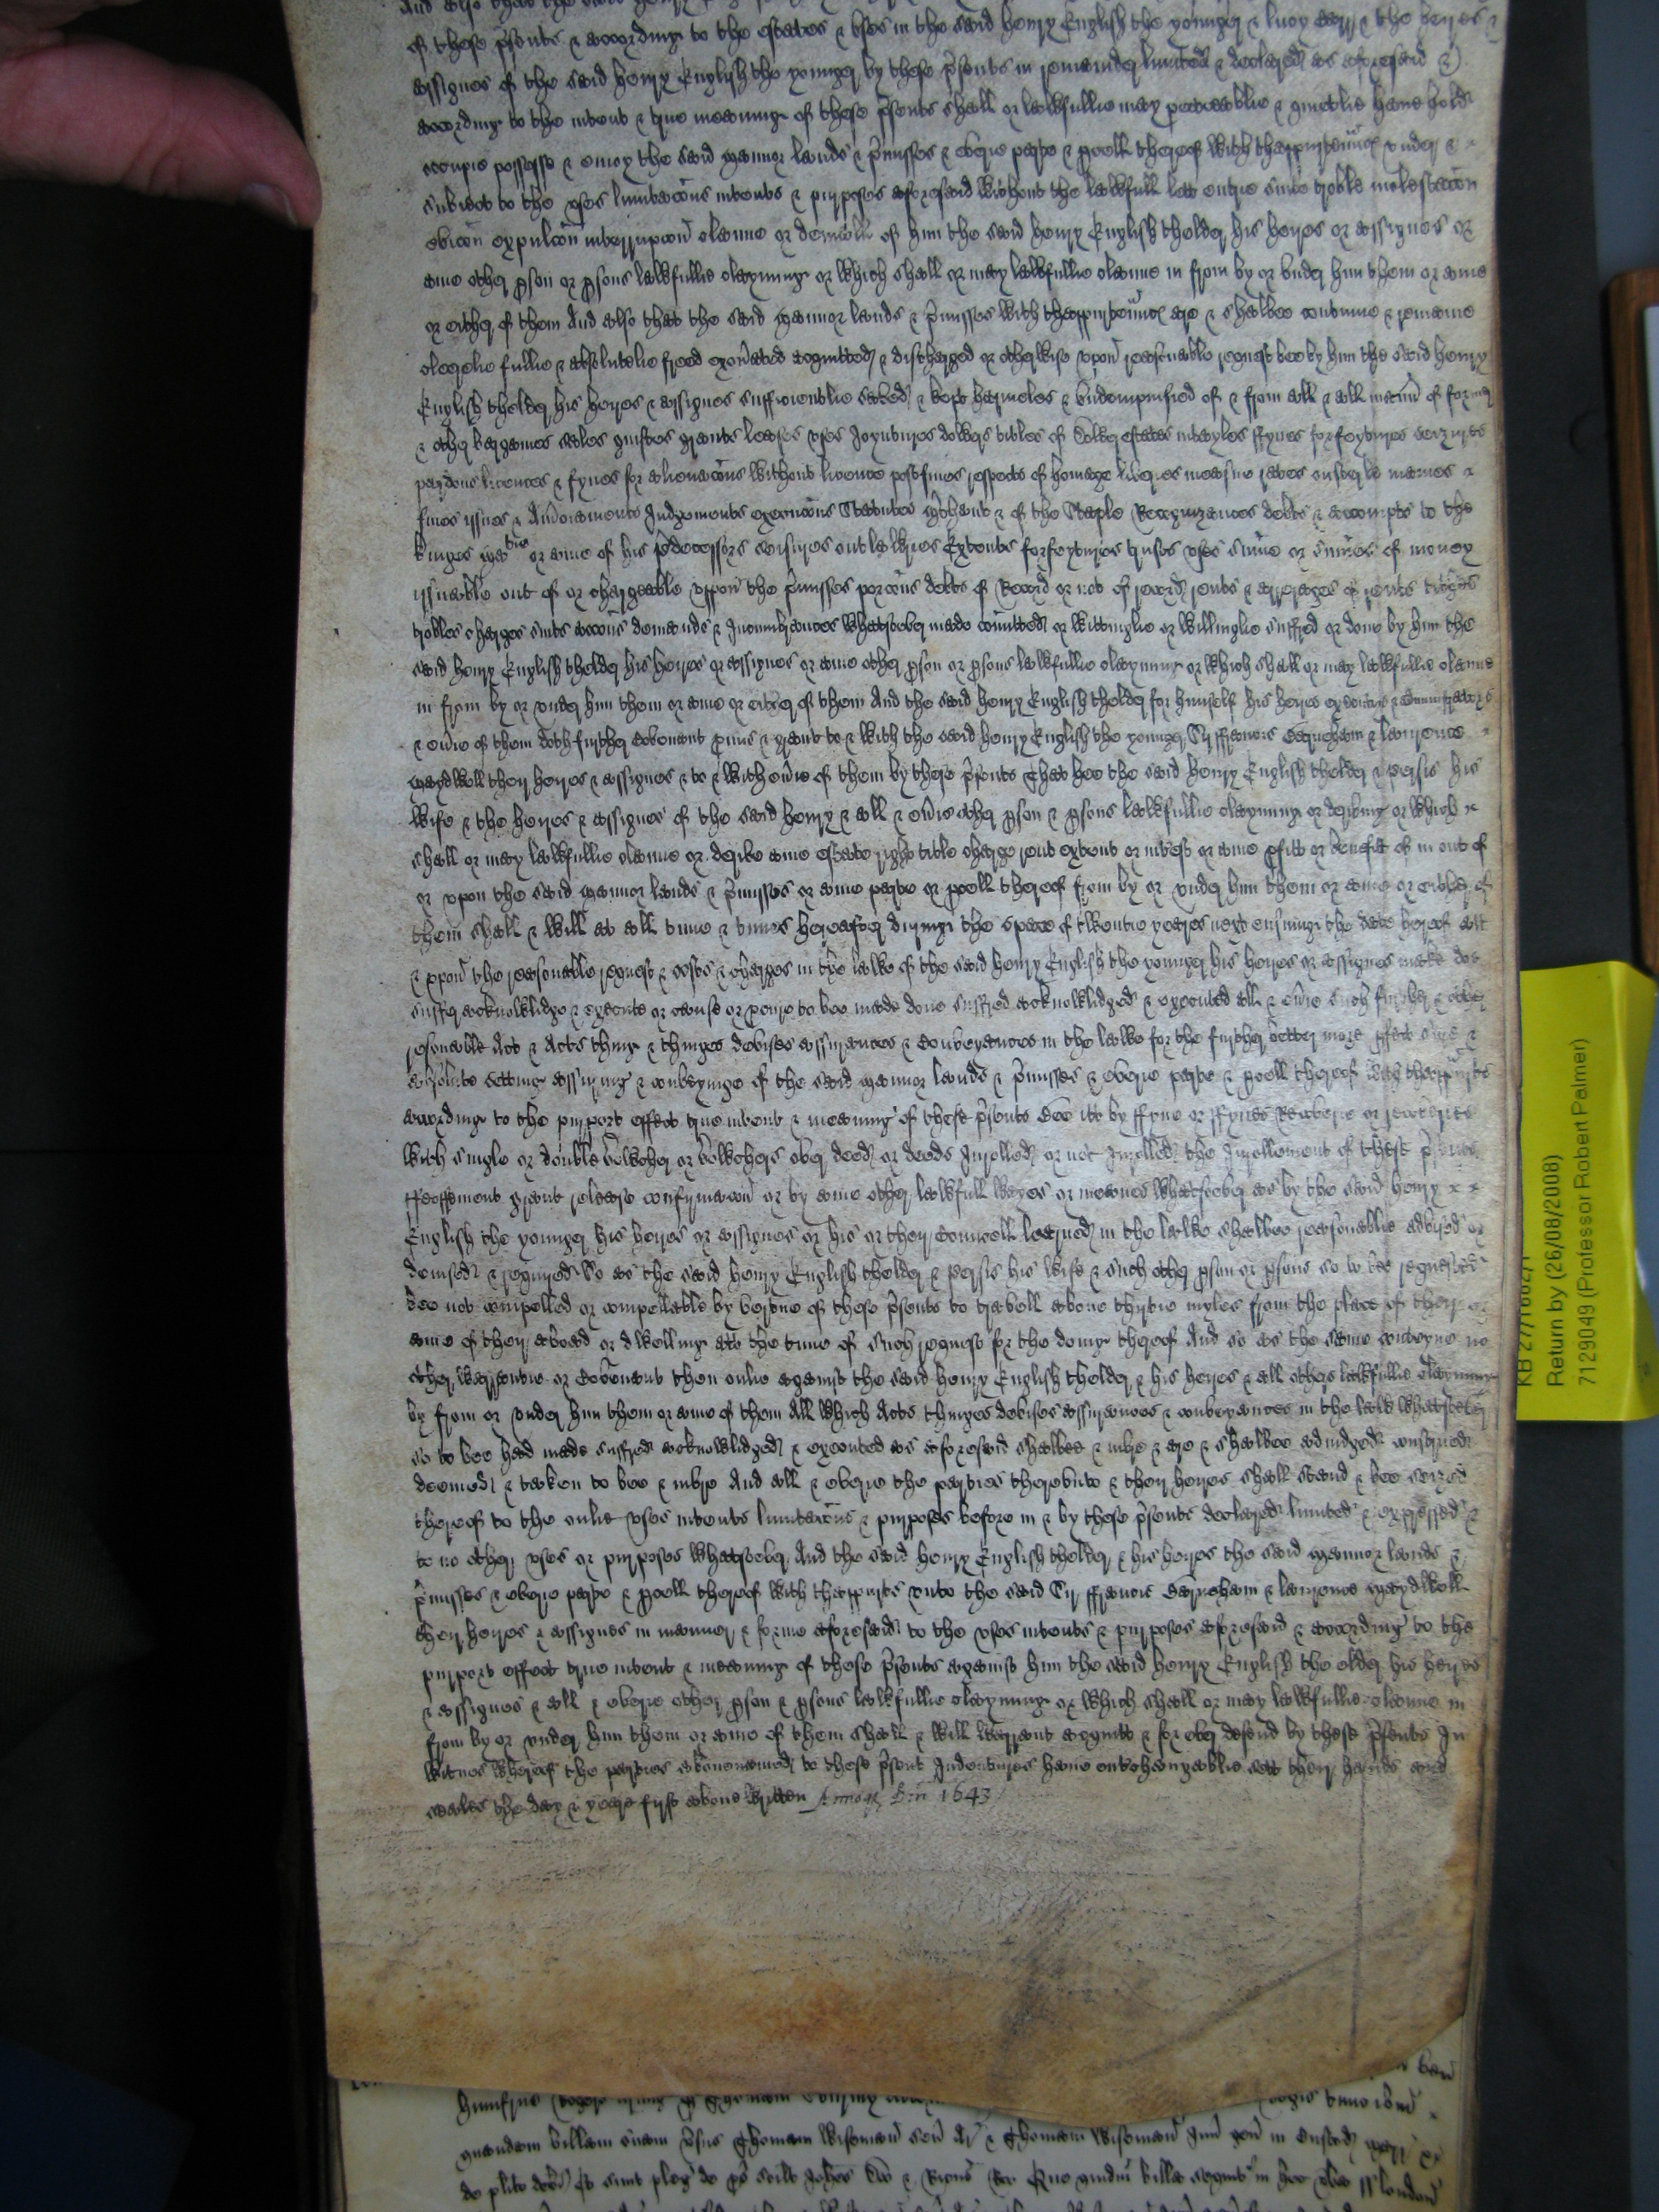 And also that the said henry
of these p̃sents & according to the estates & uses in the said henry English the younger & lucy & the heyres &
assignes of the said henry English the younger by these p̃sents in remainder limited & declared as aforesaid
according to the intent & true meaning of these p̃sents shall or lawfullie may peaceablie & quietlie have hold
occupie possesse & enioy the said mannor lands & p̃misses & everie parte & p̃cell thereof with thappurtenñces under &
subiect to the uses limitac̃ons intents & purposes aforesaid without the lawfull lett entrie suite troble molestac̃on
evicc̃on expulc̃on interrupc̃on clayme or deniall of him the said henry English thelder his heyres or assignes or
anie other p̃son or p̃sons lawfullie clayming or which shall or may lawfullie clayme in from by or under him them or anie
or either of them And also that the said mannor lands & p̃misses with thappurtenñces are & shalbee continue & remaine
cleerelie fullie & absolutelie freed exoñated acquitted & discharged or otherwise upon reasonable request bee by him the said henry
English thelder his heyres & assignes sufficientlie saved & kept harmeles & indempnified of & from all & all mañn of former
& other bargaines sales guiftes grants leases uses Joyntures dowers titles of dower estates intayles ffynes forfeytures
pardons licences & fynes for alienac̃ons without licence postfines respects of homage liveries meane rates
fines issues & Amerciaments Judgements execuc̃ons Statutes m̃chant & of the Staple Recognizances debts & accompts to the
kinges ma^tie or anie of his p̃decessors seisures outlawries Extents forfeytures trusts uses sum̃e or sum̃es of money
issuable out of or chargeable uppon the p̃misses porc̃ons debts of Record or not of record rents & arrerages of rents
trobles charges suits acc̃ons demands & Incumbrances whatsoever made com̃itted or wittinglie or willinglie suffred or done by him the
said henry English thelder his heyres or assignes or anie other p̃son or p̃sons lawfullie clayming or which shall or may lawfullie clayme
in from by or under him them or anie or either of them And the said henry English thelder for himself his heyres executors & administrators
& eṽie of them doth further covenant p̃mis & grant to & with the said henry English the younger Sr ffrancis Barneham & lawrence
Maydwell their heyres & assignes & to & with eṽie of them by these p̃sents That hee the said henry English thelder & persis his
wife & the heyres & assignes of the said henry & all & eṽie other p̃son & p̃sons lawfullie clayming or deriving or which
shall or may lawfullie clayme or derive anie estate right title charge rent extent or interest or anie p̃fitt or benefitt of in out of
or upon the said mannor lands & p̃misses or anie parte or p̃cell thereof from by or under him them or anie or either of
them shall & will at all time & times hereafter during the space of twentie yeares next ensuing the date hereof att
& uppon the reasonable request & costs & charges in the lawe of the said henry English the younger his heyres or assignes make doe
suffer acknowlidge & execute or cause or p̃cure to bee made done suffred acknowlidged & executed all & eṽie such further & other
resonable Act & Acts thing & thinges devises assurances & Conveyances in the lawe for the further better more p̃fect sure &
absolute setting assuring & conveyinge of the said mannor lands & p̃misses & everie parte & p̃cell thereof with thappurts
according to the purport effect true intent & meaning of these p̃sents Bee itt by ffyne or ffynes Recoverie or recoveries
with single or double vowcher or vowchers over deed or deeds Inrolled or not Inrolled the Inrollement of these p̃sents
ffeoffement grant release confirmac̃on or by anie other lawfull wayes or meanes whatsoever as by the said henry
English the younger his heyres or assignes or his or their Councell learned in the lawe shalbee reasonablie advised or
devised & required So as the said henry English thelder & persis his wife & such other p̃son or p̃sons so to bee requested
bee not compelled or compellable by vertue of these p̃sents to travell above thyrtie myles from the place of their or
anie of their aboad or dwelling att the time of such request for the doing thereof And so as the same conteyne no
other warrantie or Covenant then onlie against the said henry English thelder & his heyres & all others lawfullie clayming
by from or under him them or anie of them All which Acts thinges devises assurances & conveyances in the lawe whatsoever
so to bee had made suffred acknowlidged & executed as aforesaid shalbee & inure & are & shalbee adiudged construed
deemed & taken to bee & inure And all & everie the parties thereunto & their heyres shall stand & bee seized
thereof to the onlie uses intents limitac̃ons & purposes before in & by these p̃sents declared limited & expressed &
to no other uses or purposes whatsoever And the said henry English thelder & his heyres the said mannor lands &
p̃misses & everie parte & p̃cell thereof with thappurts unto the said Sr ffrancis Barneham & lawrence Maydwell
their heyres & assignes in manner & forme aforesaid to the uses intents & purposes aforesaid & according to the
purport effect true intent & meaning of these p̃sents against him the said henry English the elder his heyres
& assignes & all & everie other p̃son & p̃sons lawfullie clayming or which shall or may lawfullie clayme in
from by or under him them or anie of them shall & will warrant acquitt & for ever defend by these p̃sents In
witnes whereof the parties abovenamed to these p̃sent Indentures have enterchangeablie sett their hands and
seales the day & yeare first above written Annoq̃ Dñi 1643
quandam billam suam ṽsus Thomam Wiseman señ Aṙ & Thomam Wiseman Juñ
KB 27/1682/1
Return by (26/08/2008)
7129049 (Professor Robert Palmer)